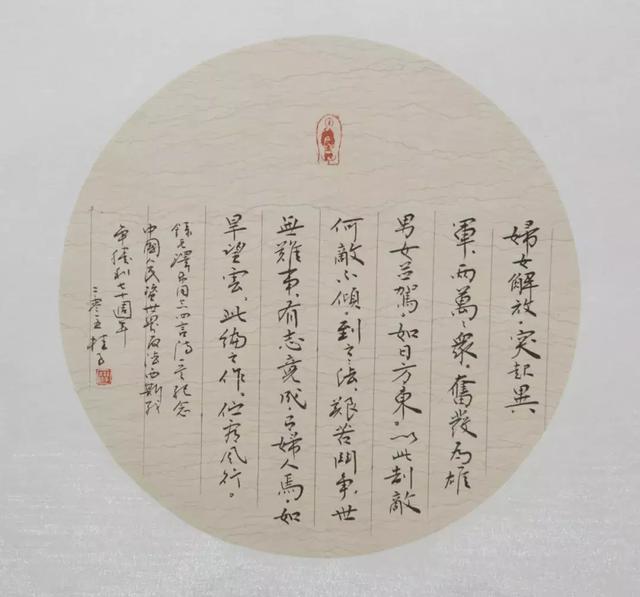 婦女解放，突起異
軍，兩萬萬衆，奮發爲雄
男女並駕，如日方東，以此制敵
何敵不傾，到之之法，艱苦鬥爭，世
無難事，有志竟成，有婦人焉，如
旱望雲，此編之作，伫看風行。
錄毛澤東同志四言詩一首紀念
中國人民暨世界反法西斯戰
争勝利七十週年
二零一五